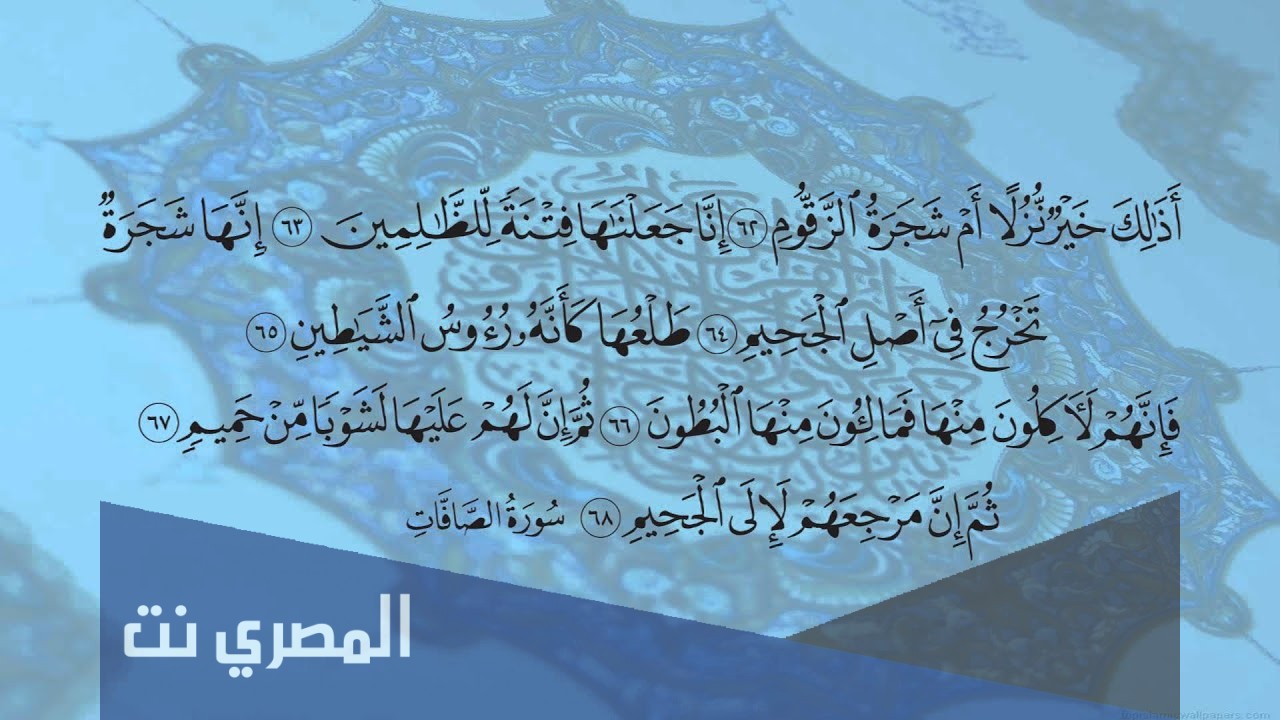 أَذَٰلِكَ خَيْرٌ نُّزُلًا أَمْ شَجَرَةُ ٱلزَّقُّومِ ٦٢ إِنَّا جَعَلْنَٰهَا فِتْنَةً لِّلظَّٰلِمِينَ ٦٣ إِنَّهَا شَجَرَةٌ
تَخْرُجُ فِىٓ أَصْلِ ٱلْجَحِيمِ ٦٤ طَلْعُهَا كَأَنَّهُۥ رُءُوسُ ٱلشَّيَٰطِينِ ٦٥
فَإِنَّهُمْ لَـَٔاكِلُونَ مِنْهَا فَمَالِـُٔونَ مِنْهَا ٱلْبُطُونَ ٦٦ ثُمَّ إِنَّ لَهُمْ عَلَيْهَا لَشَوْبًا مِّنْ حَمِيمٍ ٦٧
ثُمَّ إِنَّ مَرْجِعَهُمْ لَإِلَى ٱلْجَحِيمِ ٦٨ سُورَةُ الصَّافَّاتِ
المصري نت